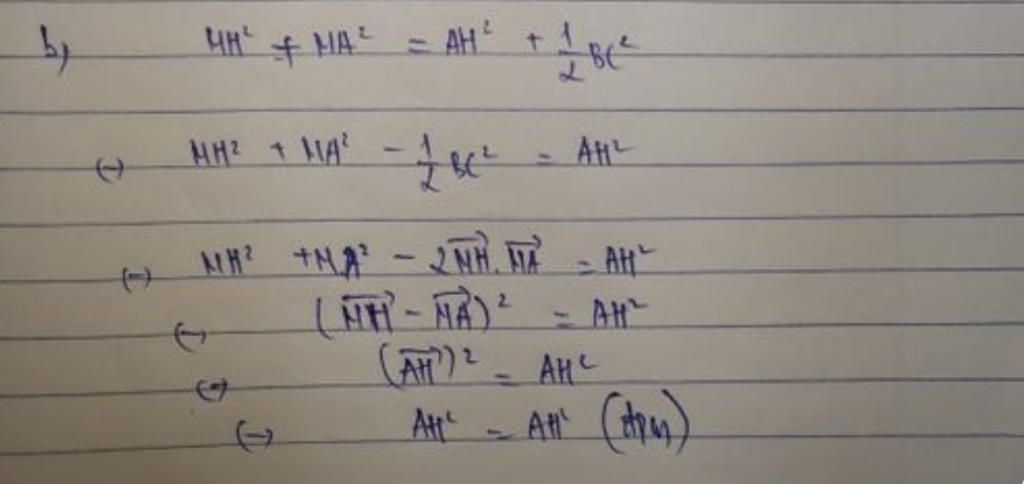 b) MH² + MA² = AH² + \frac{1}{2} BC²
(-) MH² + MA² - \frac{1}{2} BC² = AH²
(-) MH² + MA² - 2\overrightarrow{MH}.\overrightarrow{MA} = AH²
(-) (\overrightarrow{MH} - \overrightarrow{MA})² = AH²
(-) (\overrightarrow{AH})² = AH²
(-) AH² = AH² (đpcm)